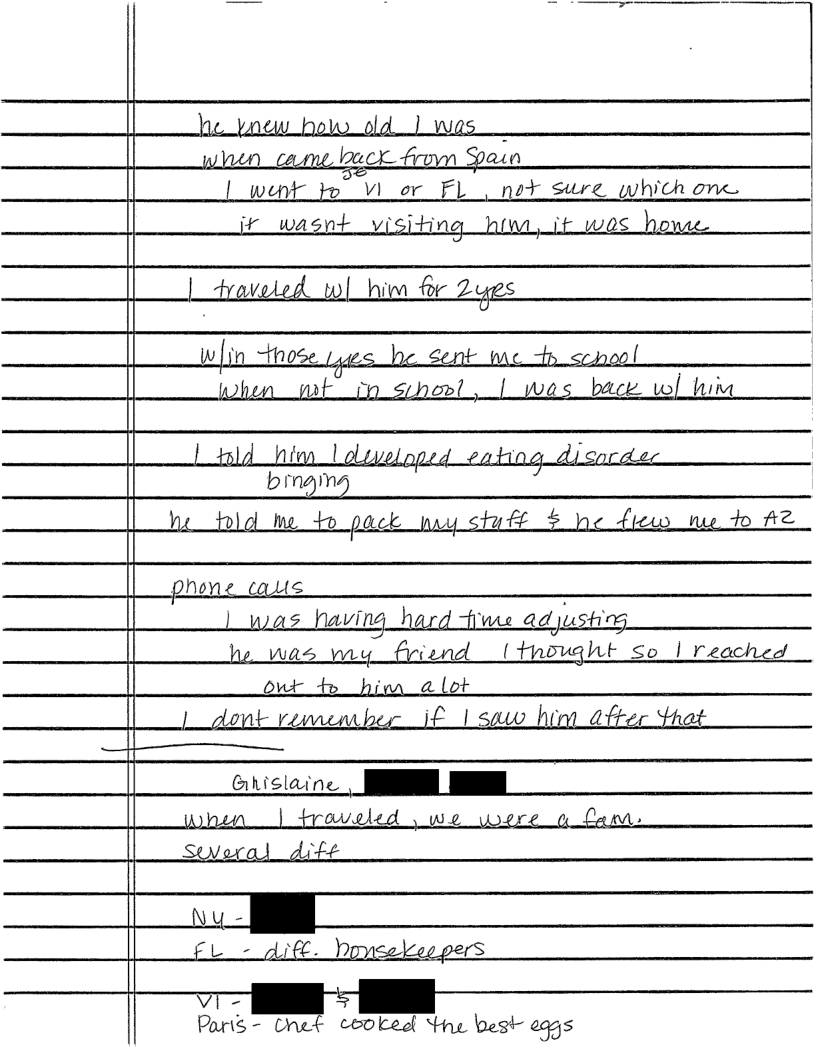 he knew how old I was
when came back from Spain
JE
I went to VI or FL, not sure which one
it wasnt visiting him, it was home
I traveled w/ him for 2 yrs
w/in those yrs he sent me to school
when not in school, I was back w/ him
I told him I developed eating disorder
binging
he told me to pack my stuff & he flew me to AZ
phone calls
I was having hard time adjusting
he was my friend I thought so I reached
out to him a lot
I dont remember if I saw him after that
Ghislaine,
when I traveled, we were a fam.
several diff
NY -
FL - diff. housekeepers
VI - &
Paris - chef cooked the best eggs